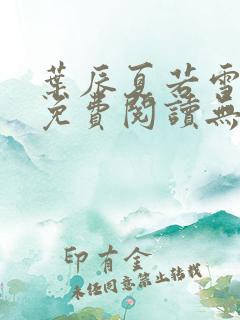 葉辰夏若雪
免費閱讀無
印有金
未經同意禁止轉載